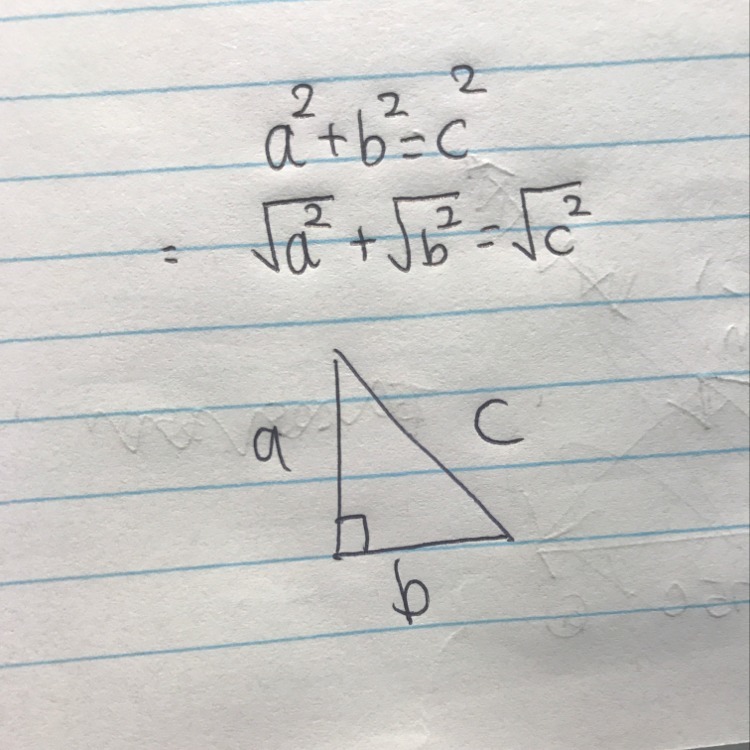 a²+b²=c²
= √a² + √b² = √c²
a
c
b